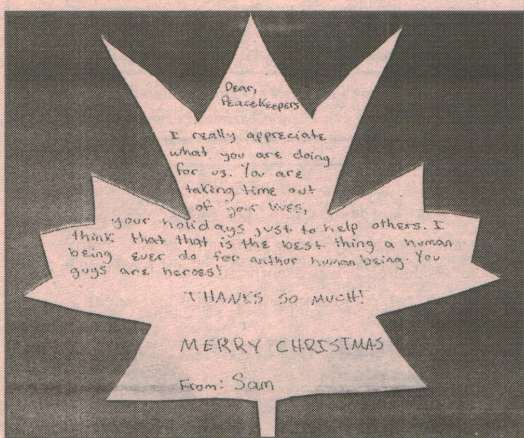 Dear,
PeaceKeepers
I really appreciate
what you are doing
for us. You are
taking time out
of your lives,
your holidays just to help others. I
think that that is the best thing a human
being ever do for anthor human being. You
guys are heroes!
THANKS SO MUCH!
MERRY CHRISTMAS
From: Sam